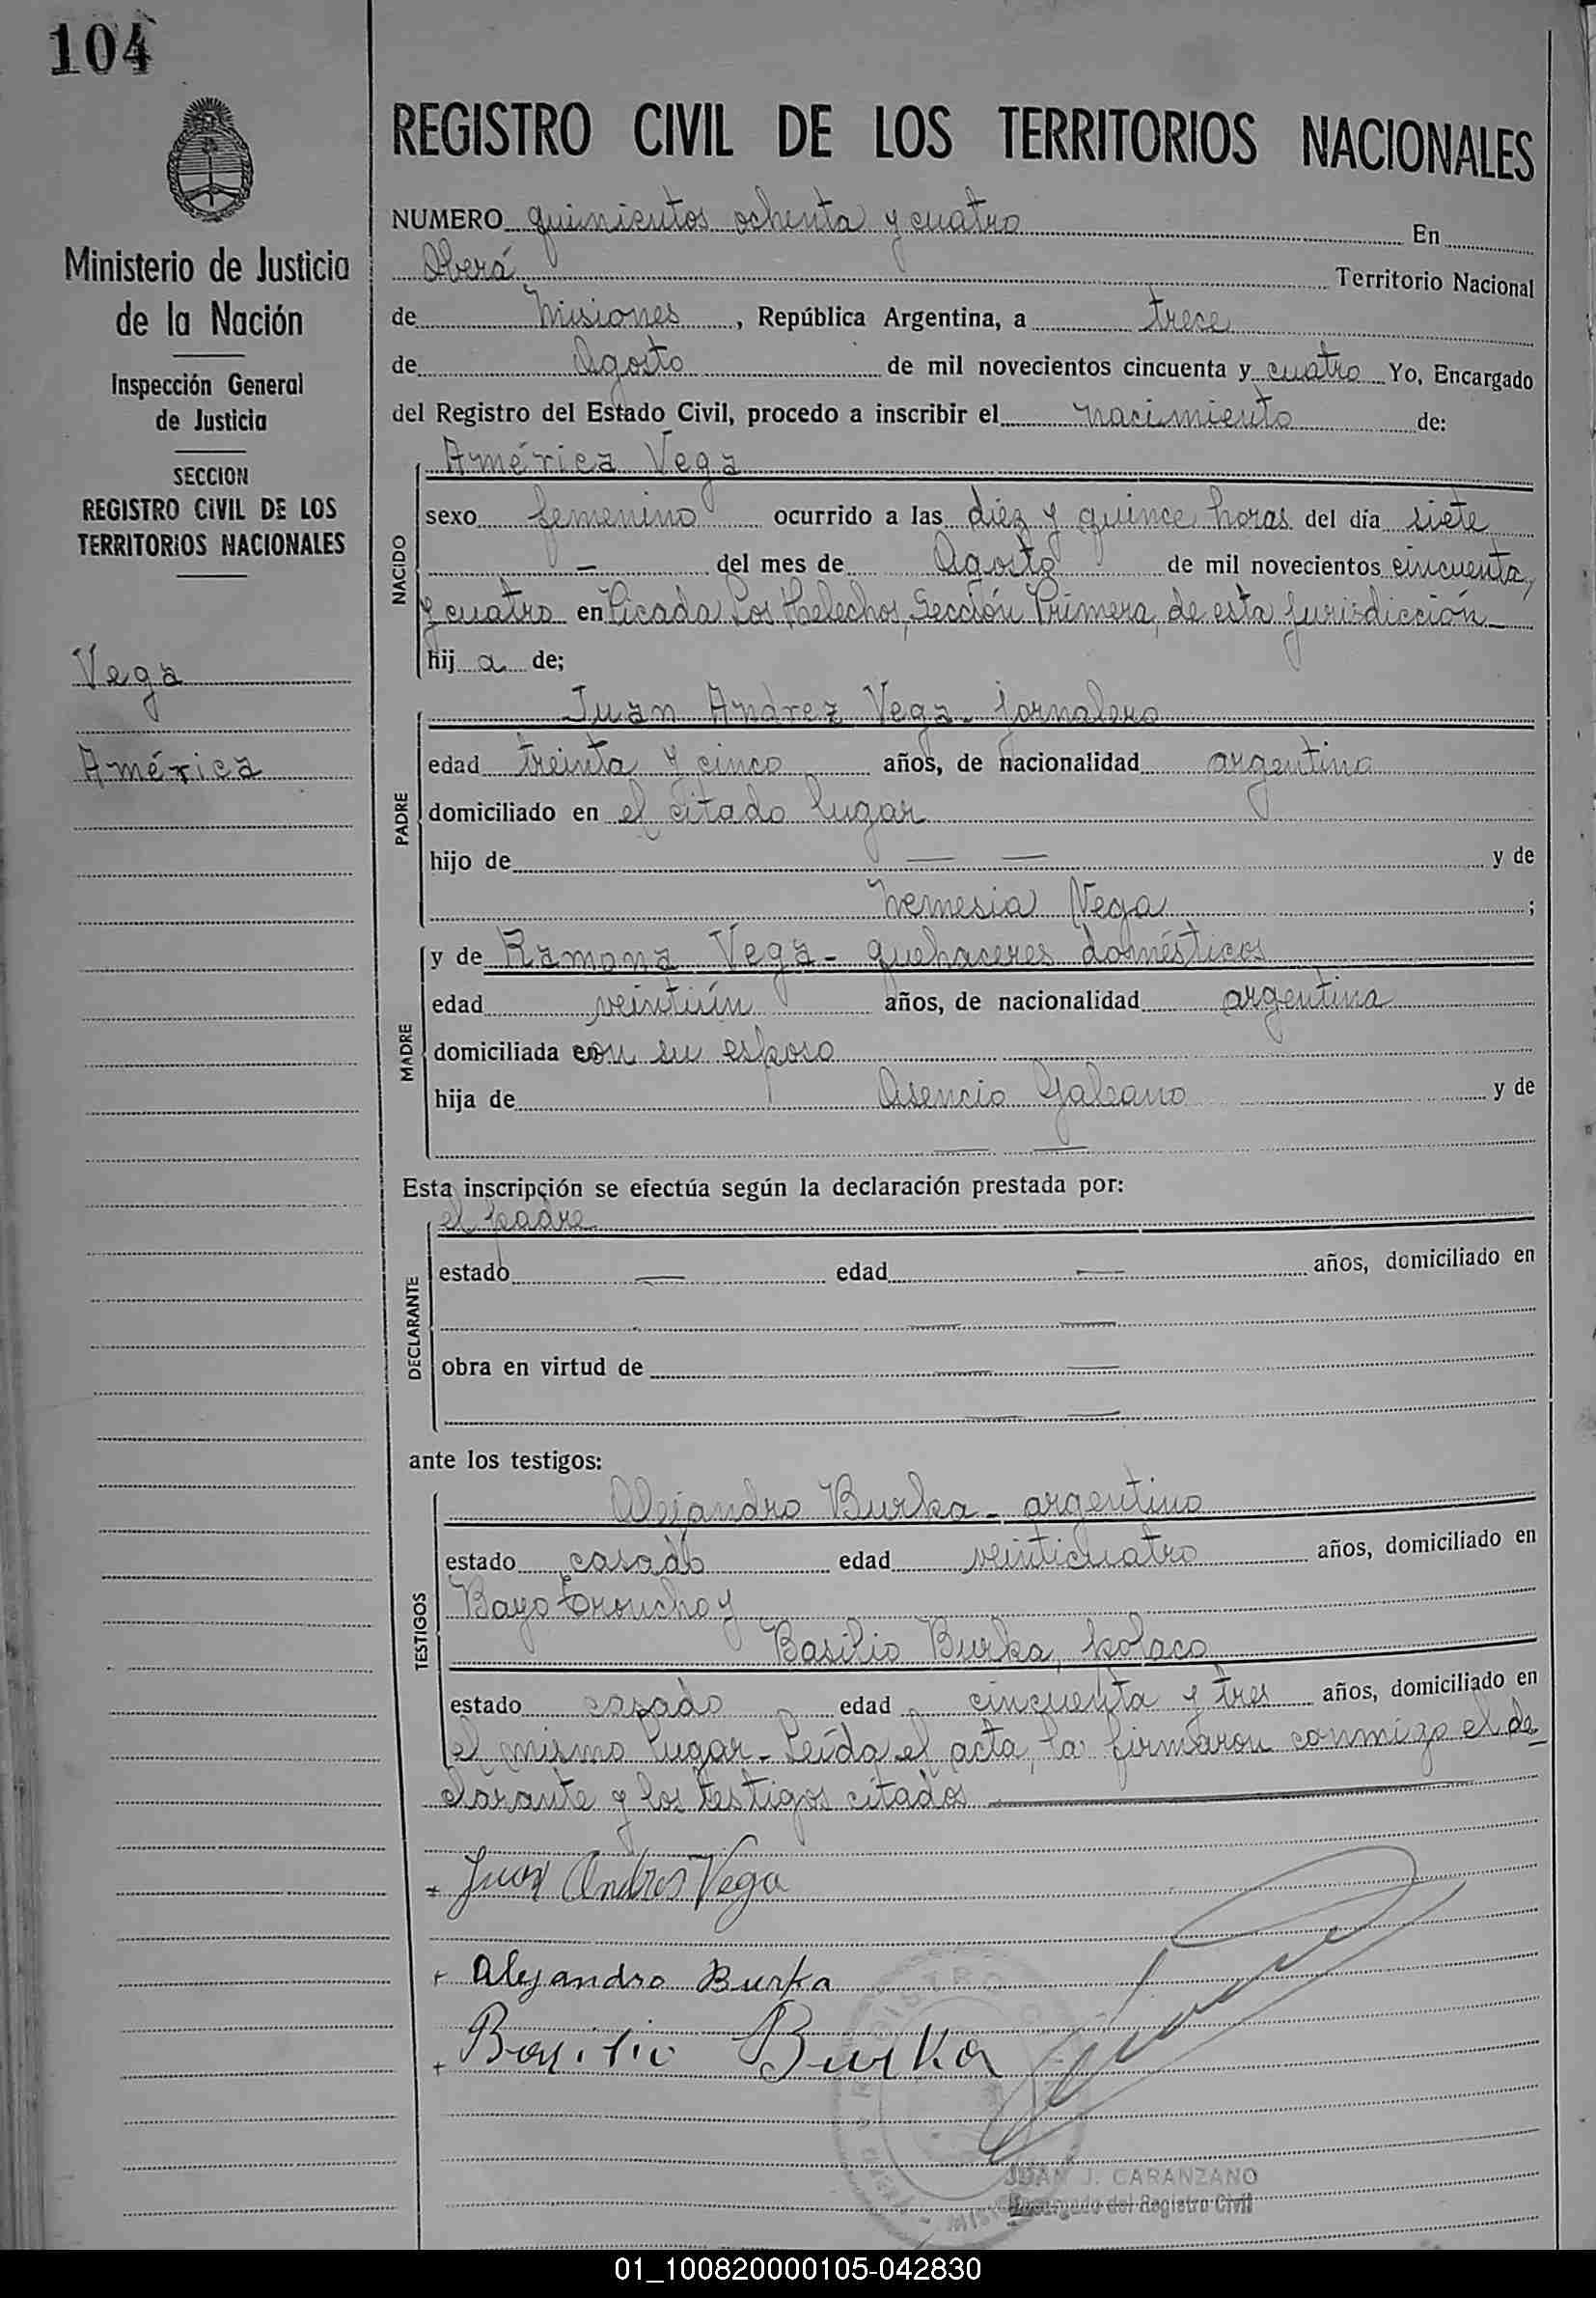 104
REGISTRO CIVIL DE LOS TERRITORIOS NACIONALES
Ministerio de Justicia
de la Nación
Inspección General
de Justicia
SECCION
REGISTRO CIVIL DE LOS
TERRITORIOS NACIONALES
Vega
América
NUMERO quinientos ochenta y cuatro En
Oberá Territorio Nacional
de Misiones, República Argentina, a trece
de Agosto de mil novecientos cincuenta y cuatro Yo, Encargado
del Registro del Estado Civil, procedo a inscribir el nacimiento de:
NACIDO
América Vega
sexo femenino ocurrido a las diez y quince horas del día siete
— del mes de Agosto de mil novecientos cincuenta
y cuatro en Picada Los Helechos, Sección Primera, de esta jurisdicción
hij a de;
PADRE
Juan Andrez Vega - jornalero
edad treinta y cinco años, de nacionalidad argentina
domiciliado en el citado lugar
hijo de — — y de
Nemesia Vega ;
MADRE
y de Ramona Vega - quehaceres domésticos
edad veintiún años, de nacionalidad argentina
domiciliada con su esposo
hija de Asencio Galeano y de
— —
Esta inscripción se efectúa según la declaración prestada por:
DECLARANTE
el padre
estado — edad — años, domiciliado en
— —
obra en virtud de — —
— —
ante los testigos:
TESTIGOS
Alejandro Burka - argentino
estado casado edad veinticuatro años, domiciliado en
Bayo Troncho y
Basilio Burka, polaco
estado casado edad cincuenta y tres años, domiciliado en
el mismo lugar - Leída el acta, la firmaron conmigo el de_
clarante y los testigos citados
+ Juan Andres Vega
+ Alejandro Burka
+ Basilio Burka
JUAN J. CARANZANO
Encargado del Registro Civil
01_100820000105-042830